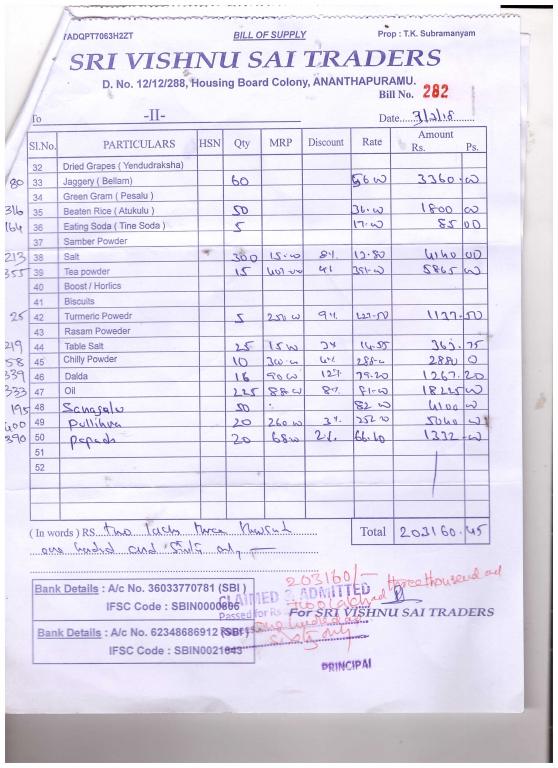 7ADQPT7063H2ZT BILL OF SUPPLY Prop : T.K. Subramanyam
SRI VISHNU SAI TRADERS
D. No. 12/12/288, Housing Board Colony, ANANTHAPURAMU.
Bill No. 282
To -II- Date
Sl.No. PARTICULARS HSN Qty MRP Discount Rate Amount
Rs. Ps.
32 Dried Grapes ( Yendudraksha)
80 33 Jaggery ( Bellam) 60 56 00 3360 00
34 Green Gram ( Pesalu )
316 35 Beaten Rice ( Atukulu ) 50 36 00 1800 00
164 36 Eating Soda ( Tine Soda ) 5 17 00 85 00
37 Samber Powder
213 38 Salt 300 15 00 8% 4140 00
355 39 Tea powder 15 407 00 4% 5865 00
40 Boost / Horlics
41 Biscuits
25 42 Turmeric Powedr 5 250 00 9% 227-50 1137-50
43 Rasam Poweder
219 44 Table Salt 25 15 00 3% 14-55 363.75
58 45 Chilly Powder 10 300 00 4% 288-00 2880 0
339 46 Dalda 16 90 00 12% 79.20 1267.20
333 47 Oil 225 88 00 8% 81-00 18225 00
195 48 50 82 00 4100 00
400 49 Pullihra 20 260 00 3% 252 00 5040 00
390 50 Papads 20 68 00 2% 66.60 1332-00
51
52
( In words ) RS two lacks three thousand Total 203160.45
one hundred and sixty only
203160/-
Bank Details : A/c No. 36033770781 (SBI ) CLAIMED & ADMITTED
IFSC Code : SBIN0000806 Passed for Rs two lakhs three thousand and
For SRI VISHNU SAI TRADERS
Bank Details : A/c No. 62348686912 (SBI ) one hundred and
IFSC Code : SBIN0021043 sixty only
PRINCIPAL